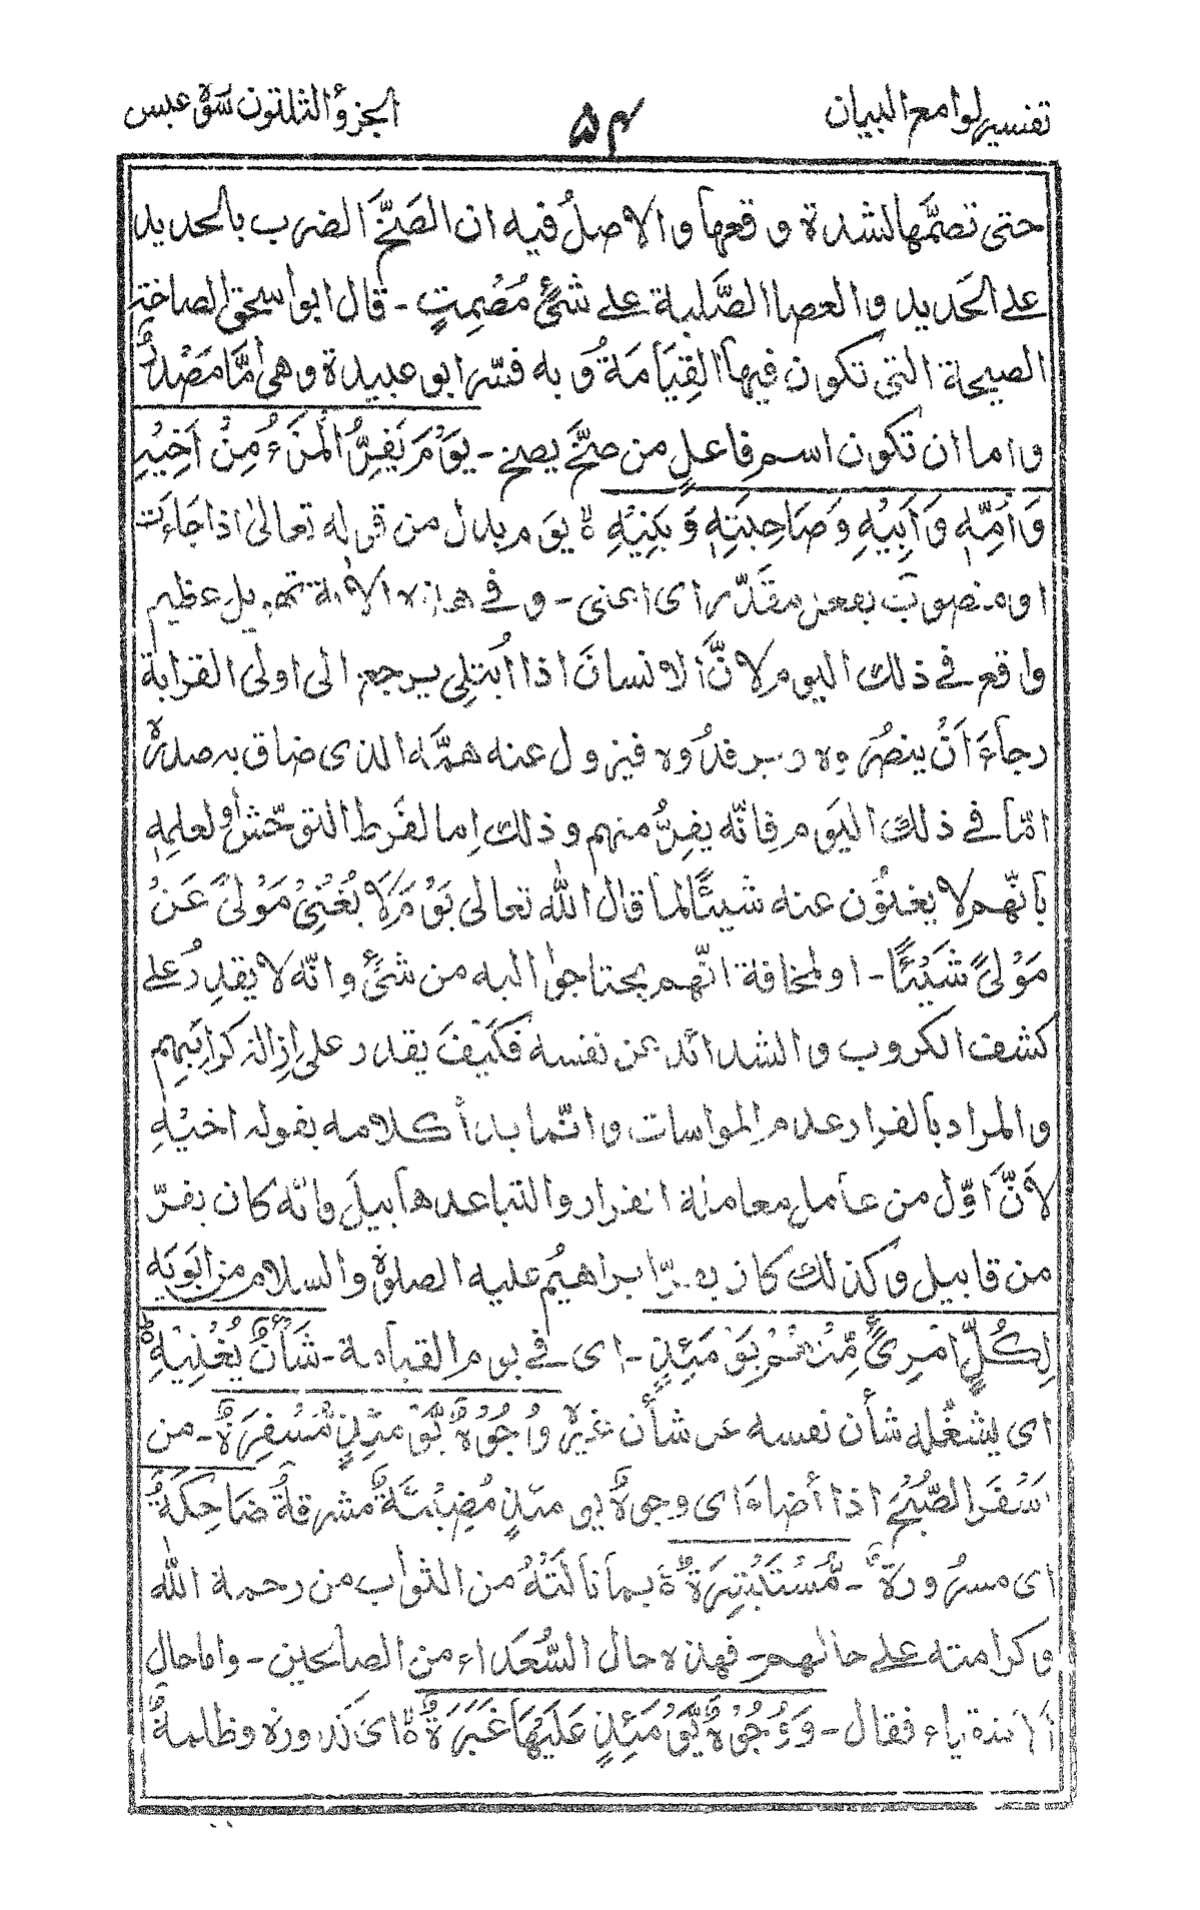 تفسير لوامع البيان ۵۴ الجزؤ الثلثون سورة عبس
حتى تصمّها لشدة وقعها والاصلُ فيه ان الصَخَّ الضرب بالحديد
على الحَديد والعصا الصَّلبة على شئٍ مُصْمِتٍ - قال ابو اسحق الصاخة
الصيحة التى تكون فيها القِيَامَةُ وبه فسّر ابو عبيدة وهى امَّا مَصْدرٌ
واما ان تكون اسم فاعلٍ من صَخَّ يصخ - يَوْمَ يَفِرُّ الْمَرْءُ مِنْ اَخِيْهِ
وَاُمِّهٖ وَاَبِيْهِ وَصَاحِبَتِهٖ وَبَنِيْهِ ۃ يوم بدل من قوله تعالىٰ اذا جَاءَت
او منصوب بفعل مقدّر اى اعنى - وفى هذه الاية تهويل عظيم
واقع فى ذلك اليوم لانَّ الانسانَ اذا اُبتلِى يرجع الى اولى القرابة
رجاءَ اَنْ ينصُروه ويرفدُوه فيزول عنه همَّه الذى ضاق به صدره
امّا فى ذلك اليَوم فانّه يفِرُّ منهم وذلك اما لفَرط التوحّش او لعلمِهٖ
بانّهم لا يغنوْن عنه شيئًا لما قال اللّٰه تعالى يَوْمَ لَا يُغْنِىْ مَوْلىً عَنْ
مَوْلىً شَيْئًا - او لمخافة انّهم يحتاجوا اليه من شئٍ وانّه لا يقدِرُ على
كشف الكروب والشدائد عن نفسه فكَيْفَ يقدر على اِزالة كرابَتِهِم
والمراد بالفرار عدم المواسات وانّما بدأ كلامه بقوله اخيْهِ
لانَّ اَوّل من عامل معاملة الفرار والتباعد هابيلَ فانّه كان يفرّ
من قابيل وكذلك كان يفرّ ابراهيمُ عليه الصلوٰة والسلام من ابَوَيه
لِكُلِّ امْرِئٍ مِّنْهُمْ يَوْمَئِذٍ - اى فى يوم القيامة - شَأْنٌ يُّغْنِيْهِ ۃ
اى يشغُله شأن نفسه عن شأن غيره وُجُوْهٌ يَّوْمَئِذٍ مُّسْفِرَةٌ - من
اَسْفَرَ الصُّبْحُ اذا أضاءَ اى وجوهٌ يومئذٍ مُضِيْئَةٌ مشرقةٌ ضَاحِكَةٌ
اى مسرُورةٌ - مُّسْتَبْشِرَةٌ ۃ بما نالَتْهُ من الثواب من رحمة اللّٰه
وكرامته على حالهم - فهذه حال السُّعَداء من الصالحين - واما حال
فقال - وَوُجُوْهٌ يَّوْمَئِذٍ عَلَيْهَا غَبَرَةٌ ۃ اى كدورة وظلمةٌ